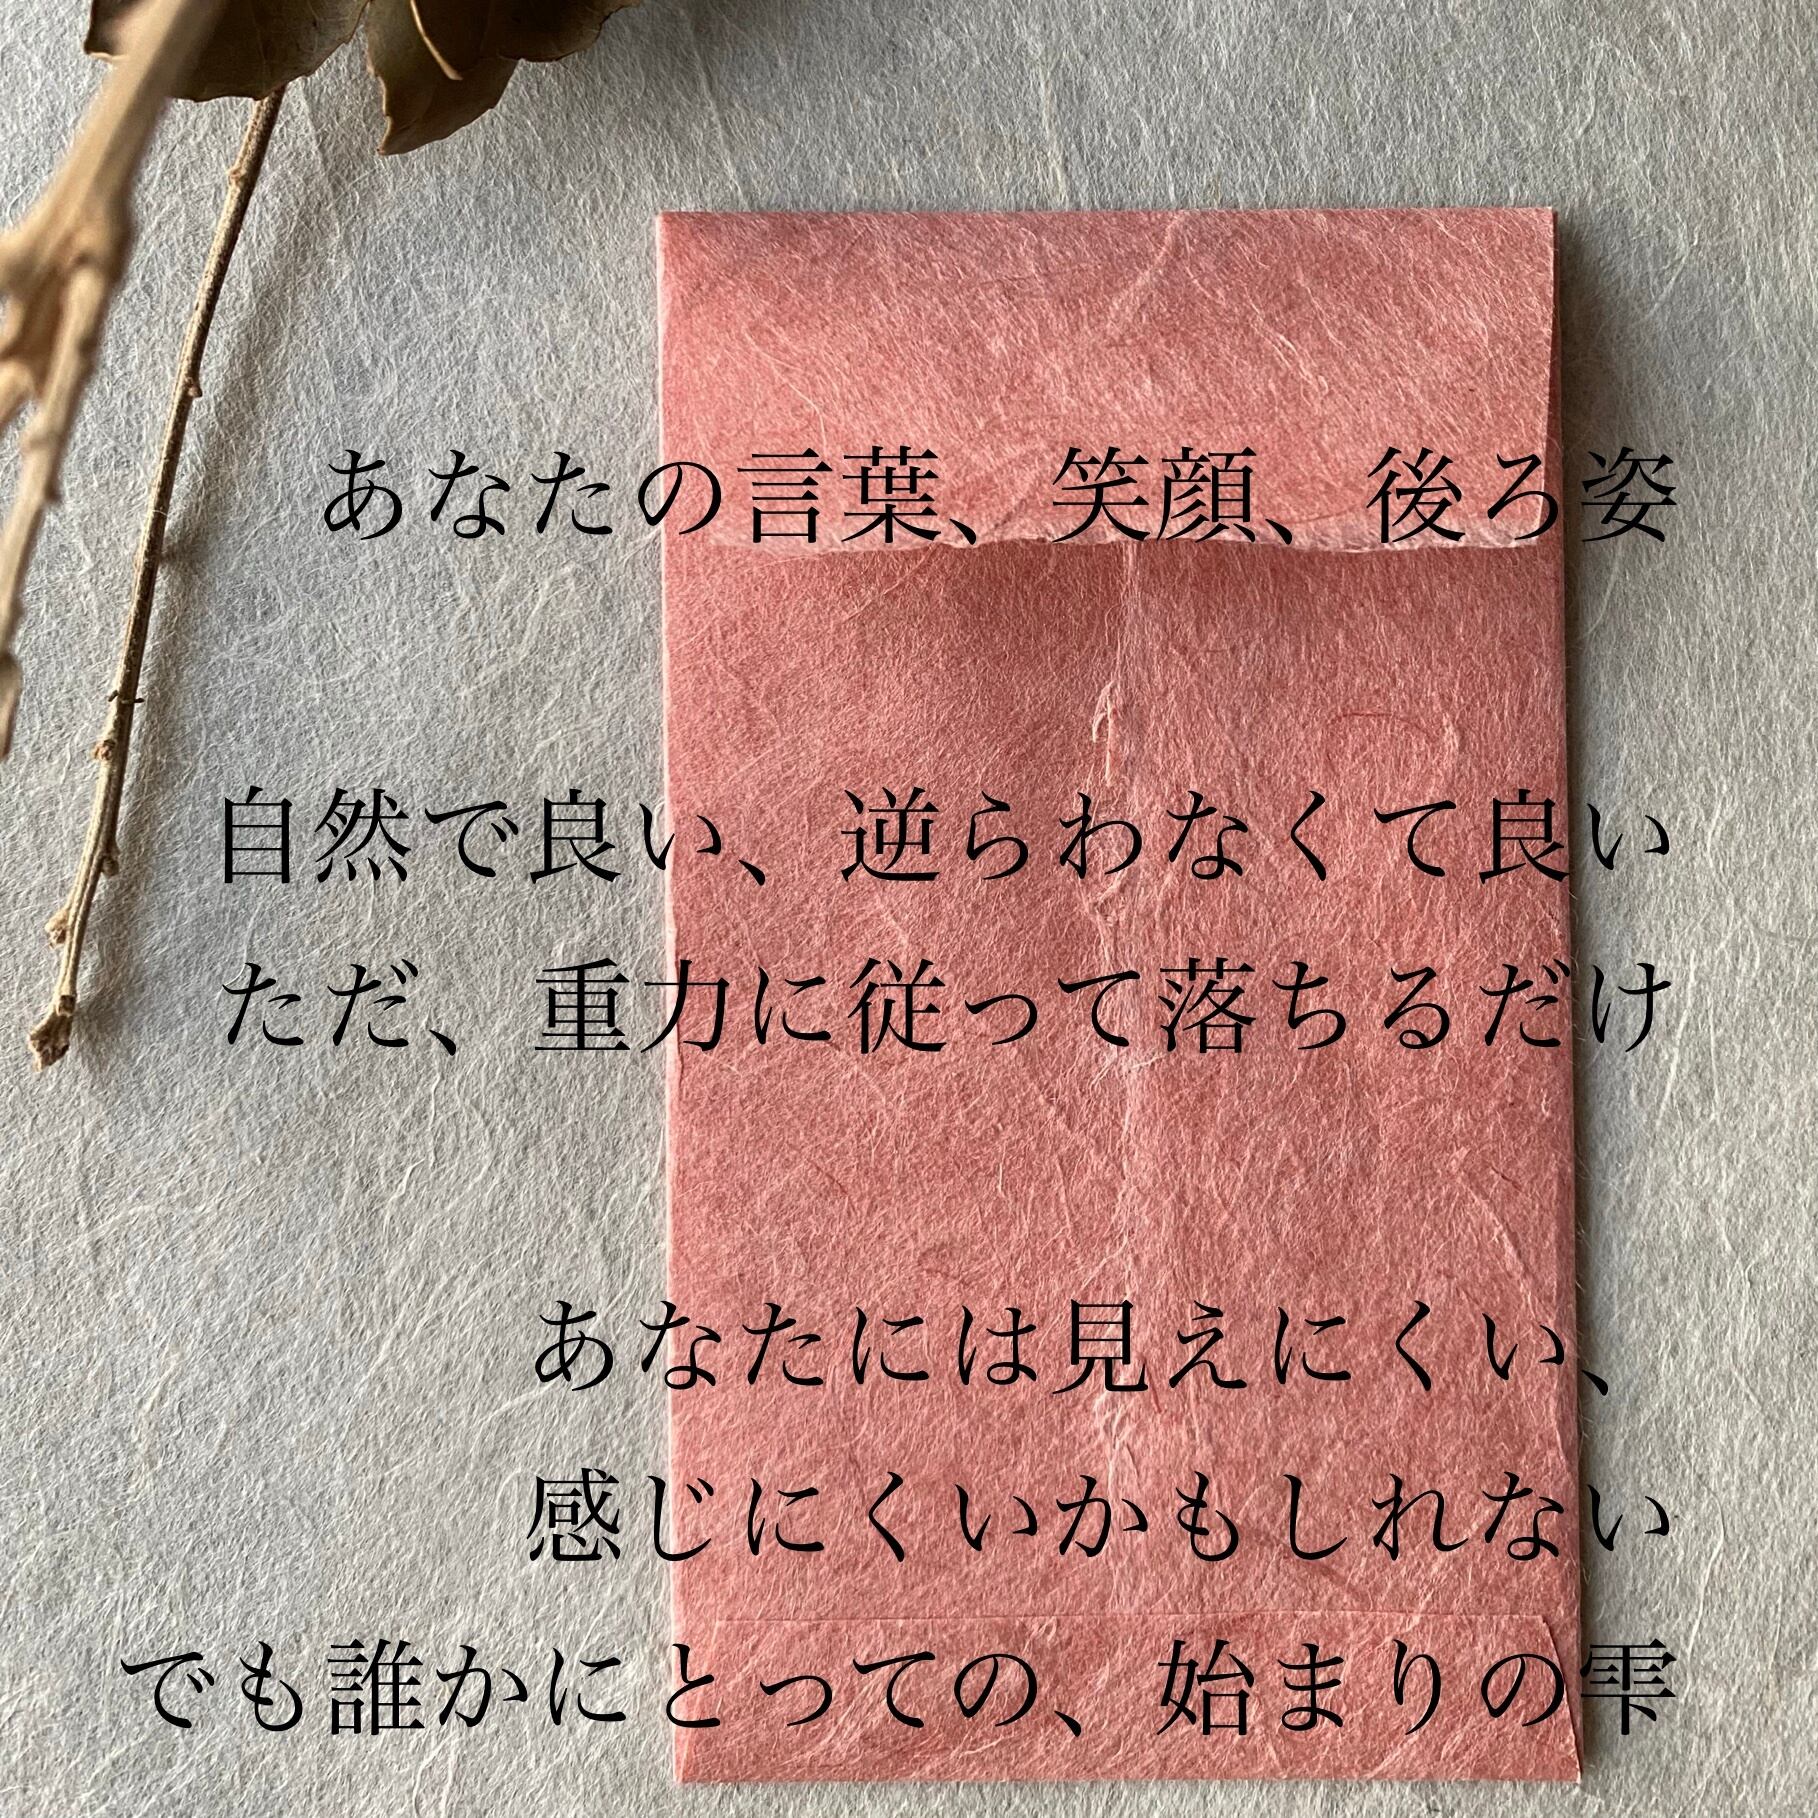 あなたの言葉、笑顔、後ろ姿
自然で良い、逆らわなくて良い
ただ、重力に従って落ちるだけ
あなたには見えにくい、
感じにくいかもしれない
でも誰かにとっての、始まりの雫